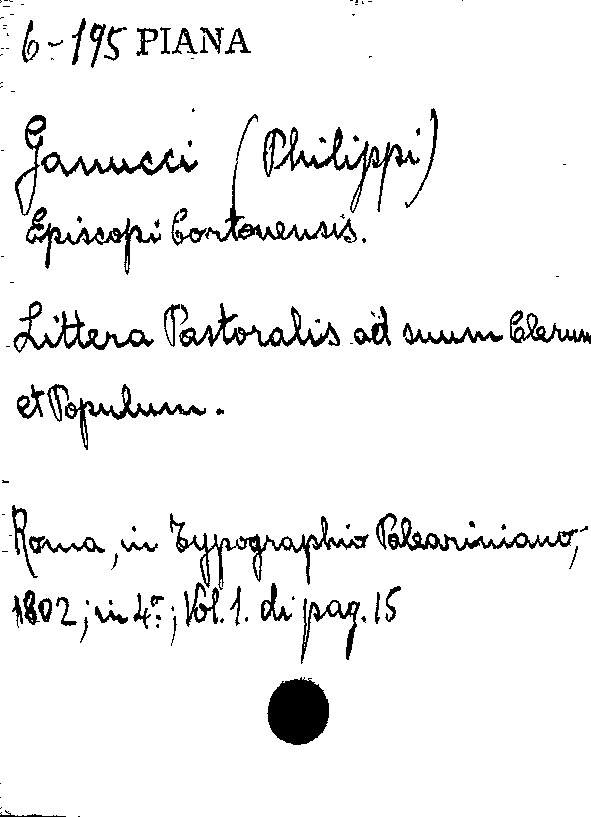 6-195 PIANA
Ganucci (Philippi)
Episcopi Cortonensis.
Littera Pastoralis ad suum Clerum
et Populum.
Roma, in Typographio Paleariniano,
1802; in 4°; Vol. 1. di pag. 15